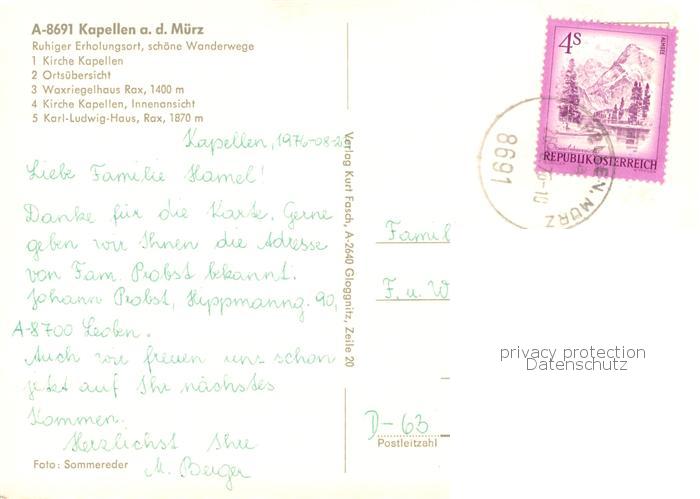 A-8691 Kapellen a. d. Mürz
Ruhiger Erholungsort, schöne Wanderwege
1 Kirche Kapellen
2 Ortsübersicht
3 Waxriegelhaus Rax, 1400 m
4 Kirche Kapellen, Innenansicht
5 Karl-Ludwig-Haus, Rax, 1870 m
Kapellen, 1976-08-2
Liebe Familie Hamel!
Danke für die Karte. Gerne
geben wir Ihnen die Adresse
von Fam. Probst bekannt:
Johann Probst, Hippmanng. 90,
A-8700 Leoben.
Auch wir freuen uns schon
jetzt auf Ihr nächstes
Kommen.
Herzlichst Ihre
M. Berger
Foto: Sommereder
Verlag Kurt Fasch, A-2640 Gloggnitz, Zeile 20
4S
ALMSEE
REPUBLIK ÖSTERREICH
8691
MÜRZ
Famil
F. u. W
privacy protection
Datenschutz
D-63
Postleitzahl